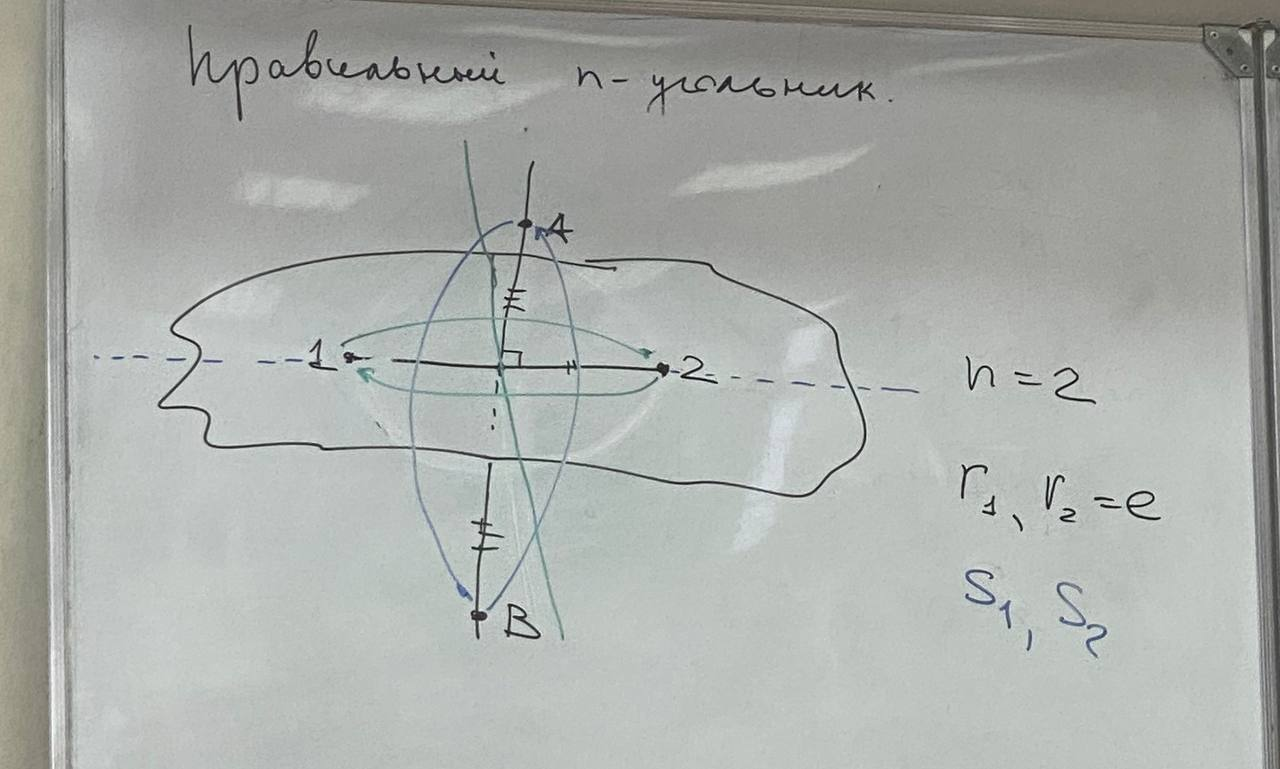 Правильный n-угольник.
A
1
2
n=2
r₁, r₂=e
S₁, S₂
B